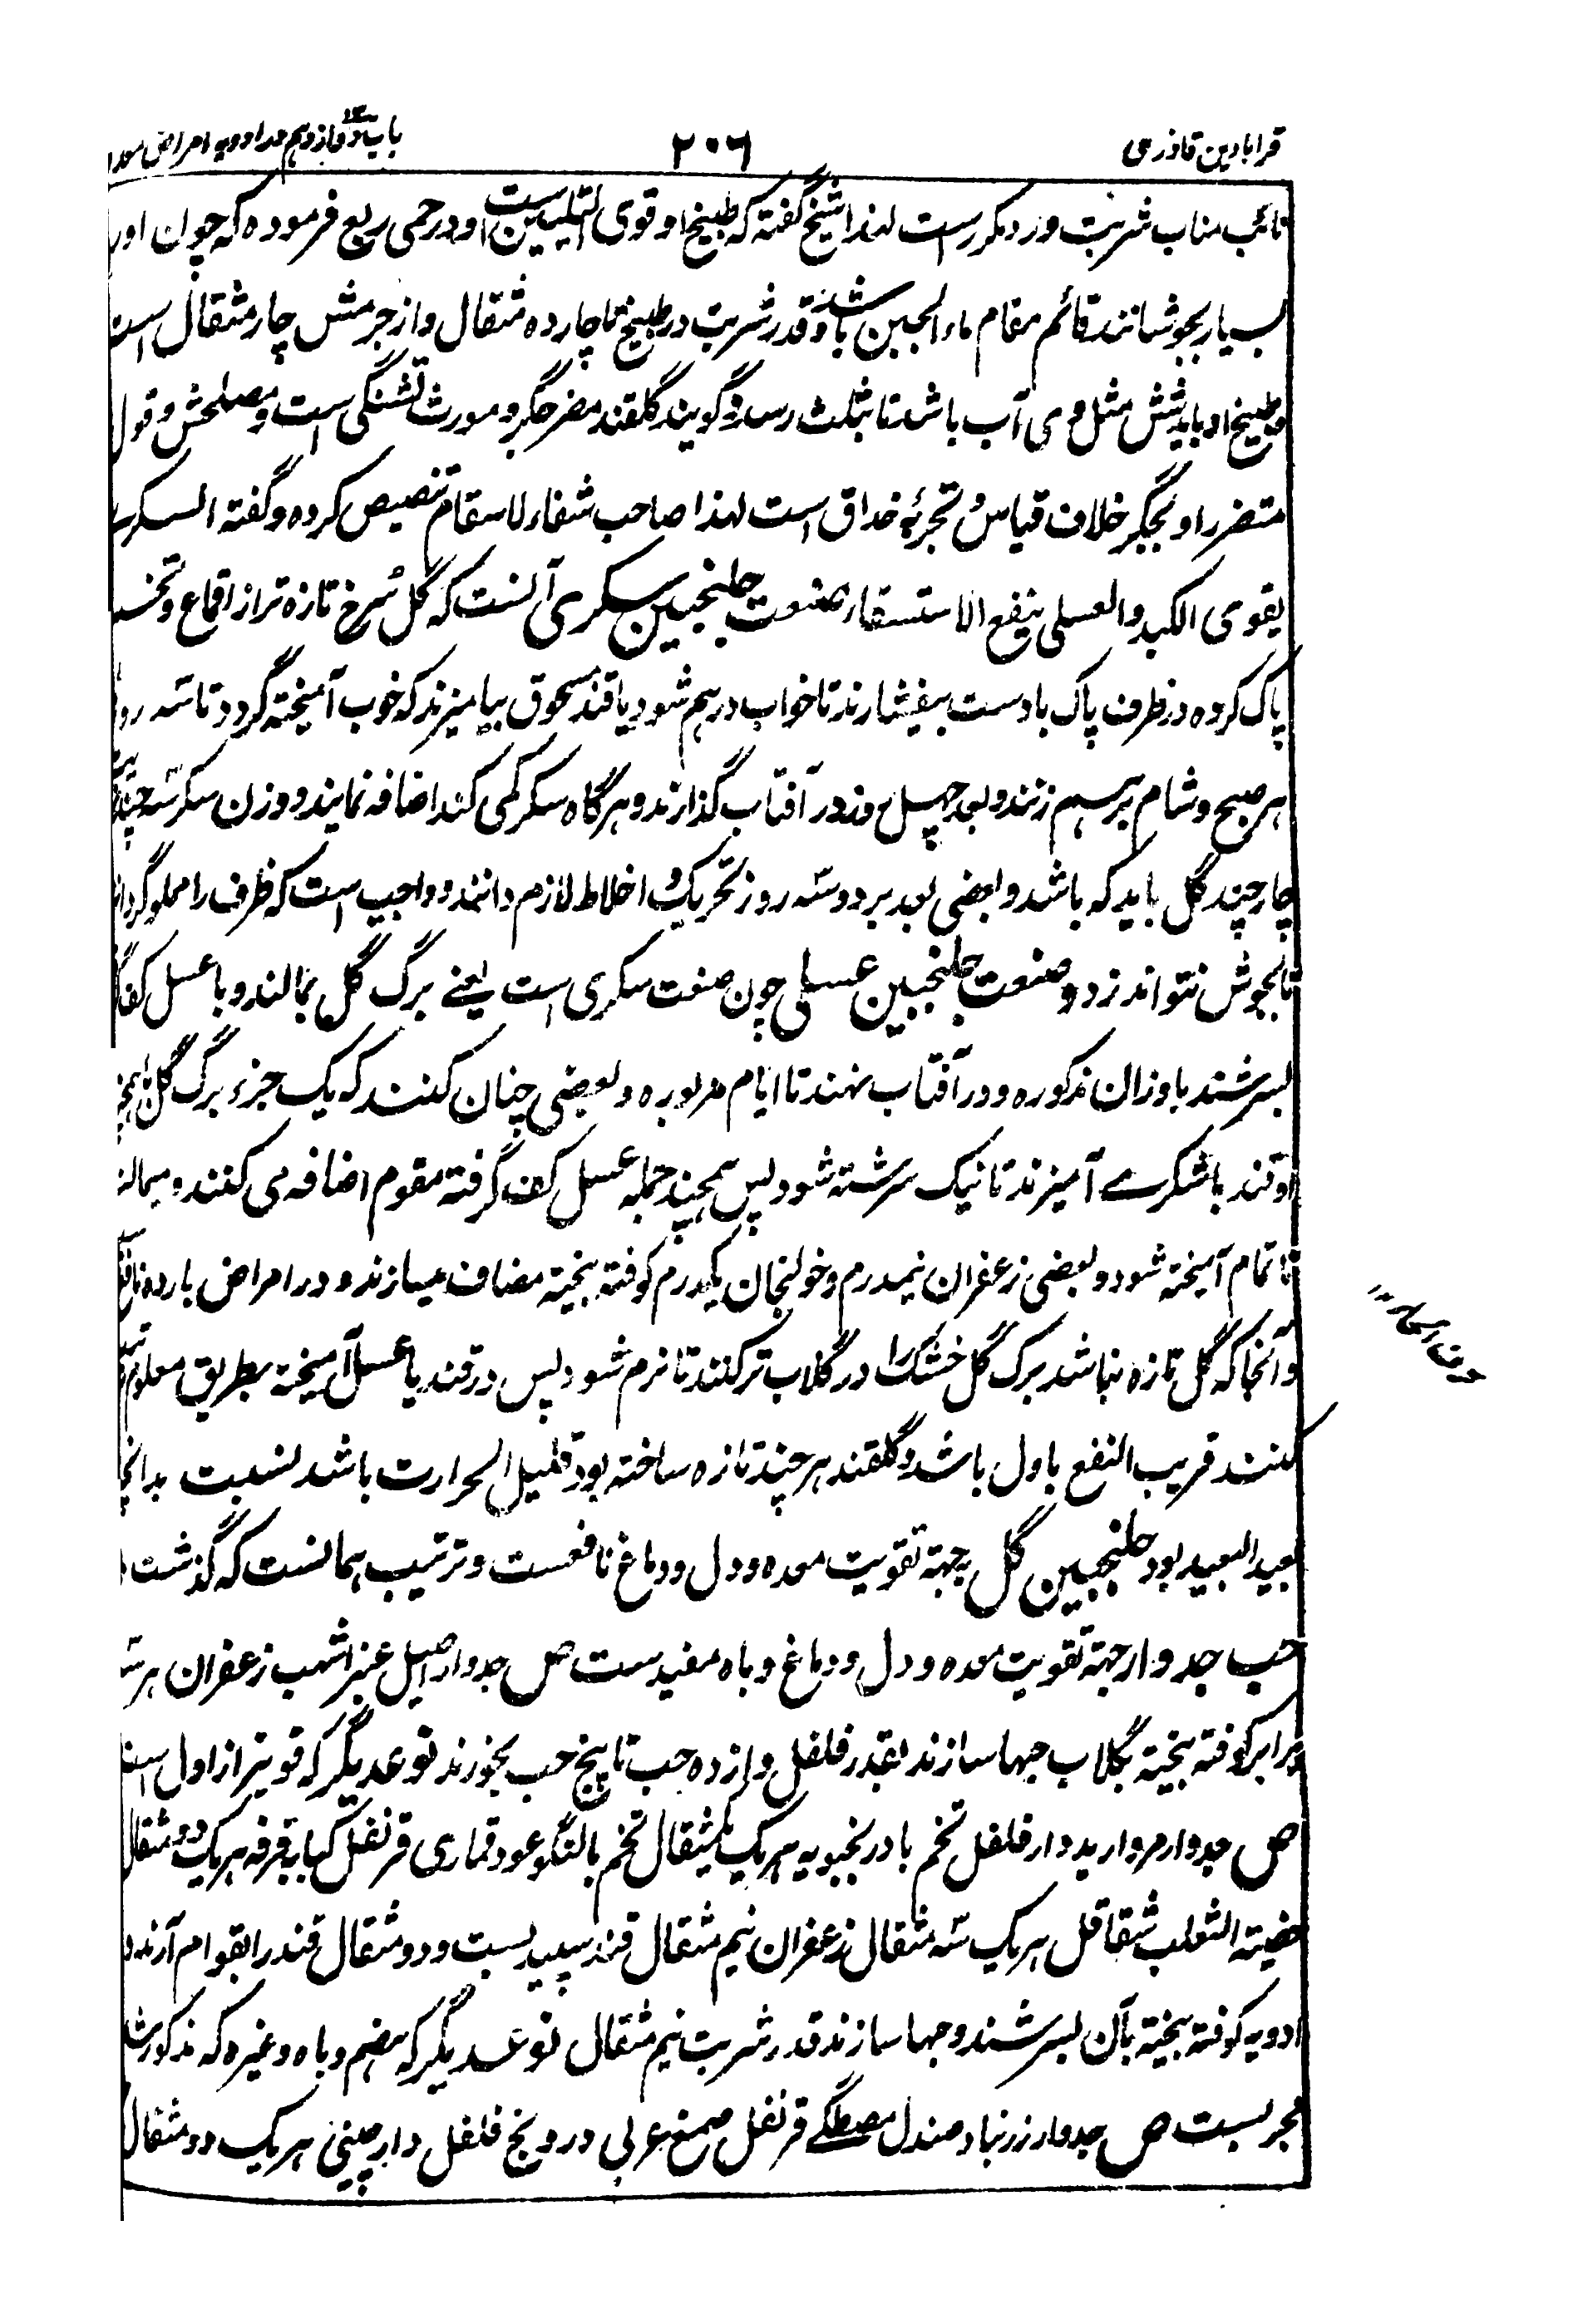 قرابادین قادری
۲۰۶
امراض معده
نائب مناب شربت ورد مکررست لهذا شیخ گفته که طبیخ او قوی التلیین است و در حمی ربع فرموده که چون او را
بسیار بجوشانند قائم مقام ماء الجبن باشد و قدر شربت در طبیخ تا چارده مثقال و از جرمش چار مثقال است
و طبیخ او باید شش مثل وی آب باشد تا بثلث رسد و گویند گلقند مضر جگر و مورث تشنگی است و مصلحش و قول
متضرر او بجگر خلاف قیاس و تجربهٔ حذاق است لهذا صاحب شفاء الاسقام تنصیص کرده و گفته السکری
یقوی الکبد والعسلی ینفع الاستسقاء صنعت جلنجبین سکری آنست که گل سرخ تازه تر از اقماع و تخم
پاک کرده در ظرف پاک با دست بیفشارند تا خواب درهم شود با قند مسحوق بیامیزند که خوب آمیخته گردد تا سه روز
هر صبح و شام برهم زنند و بعد چهل روز در آفتاب گذارند و هرگاه سکر کمی کند اضافه نمایند و وزن سکر سه چند
چار چند گل باید که باشد و بعضی بعد هر دو سه روز تحریک و اخلاط لازم دانند و واجب است که ظرف را مملو گردانند
تا بجوش نتواند زد و صنعت جلنجبین عسلی چون صنعت سکری است یعنے برگ گل بمالند و با عسل کف گرفته
بسرشند باوزان مذکوره و در آفتاب نهند تا ایام مزبوره و بعضی چنان کنند که یک جزء برگ گل با
او قند با شکرے آمیزند تا نیک سرشته شود پس همچند جمله عسل کف گرفته مقوم اضافه می کنند و میمالند
تا تمام آمیخته شود و بعضی زعفران نیمدرم و خولنجان یکدرم کوفته بیخته مضاف میسازند و در امراض بارده نافع
و آنجا که گل تازه نباشد برگ گل خشک را در گلاب تر کنند تا نرم شود پس در قند یا عسل آمیخته بطریق معلوم
کنند قریب النفع باول باشد و گلقند هر چند تازه ساخته بود قلیل الحرارت باشد نسبت بدانچه
بعید العهد بود جلنجبین گل بجهة تقویت معده و دل و دماغ نافعست و ترتیب همانست که گذشت
حب جدوار جهة تقویت معده و دل و دماغ و باه مفیدست ص جدوار اصیل عنبر اشهب زعفران هر سه
برابر کوفته بیخته بگلاب حبها سازند بقدر فلفل و از ده حب تا پنج حب بخورند نوعدیگر که قویتر از اول است
ص جدوار مروارید دارفلفل تخم بادرنجبویه هریک یکمثقال تخم بالنگو عود قماری قرنفل کبابه قرفه هریک دو مثقال
خصیته الثعلب شقاقل هریک سه مثقال زعفران نیم مثقال قند سپید بست و دو مثقال قند را بقوام آرند و
ادویه کوفته بیخته بآن بسرشند و حبها سازند قدر شربت نیم مثقال نوعدیگر که هضم و باه و غیره که مذکور شد
مجربست ص جدوار زرنباد صندل مصطگے قرنفل صمغ عربی درونج فلفل دارچینی هریک دو مثقال